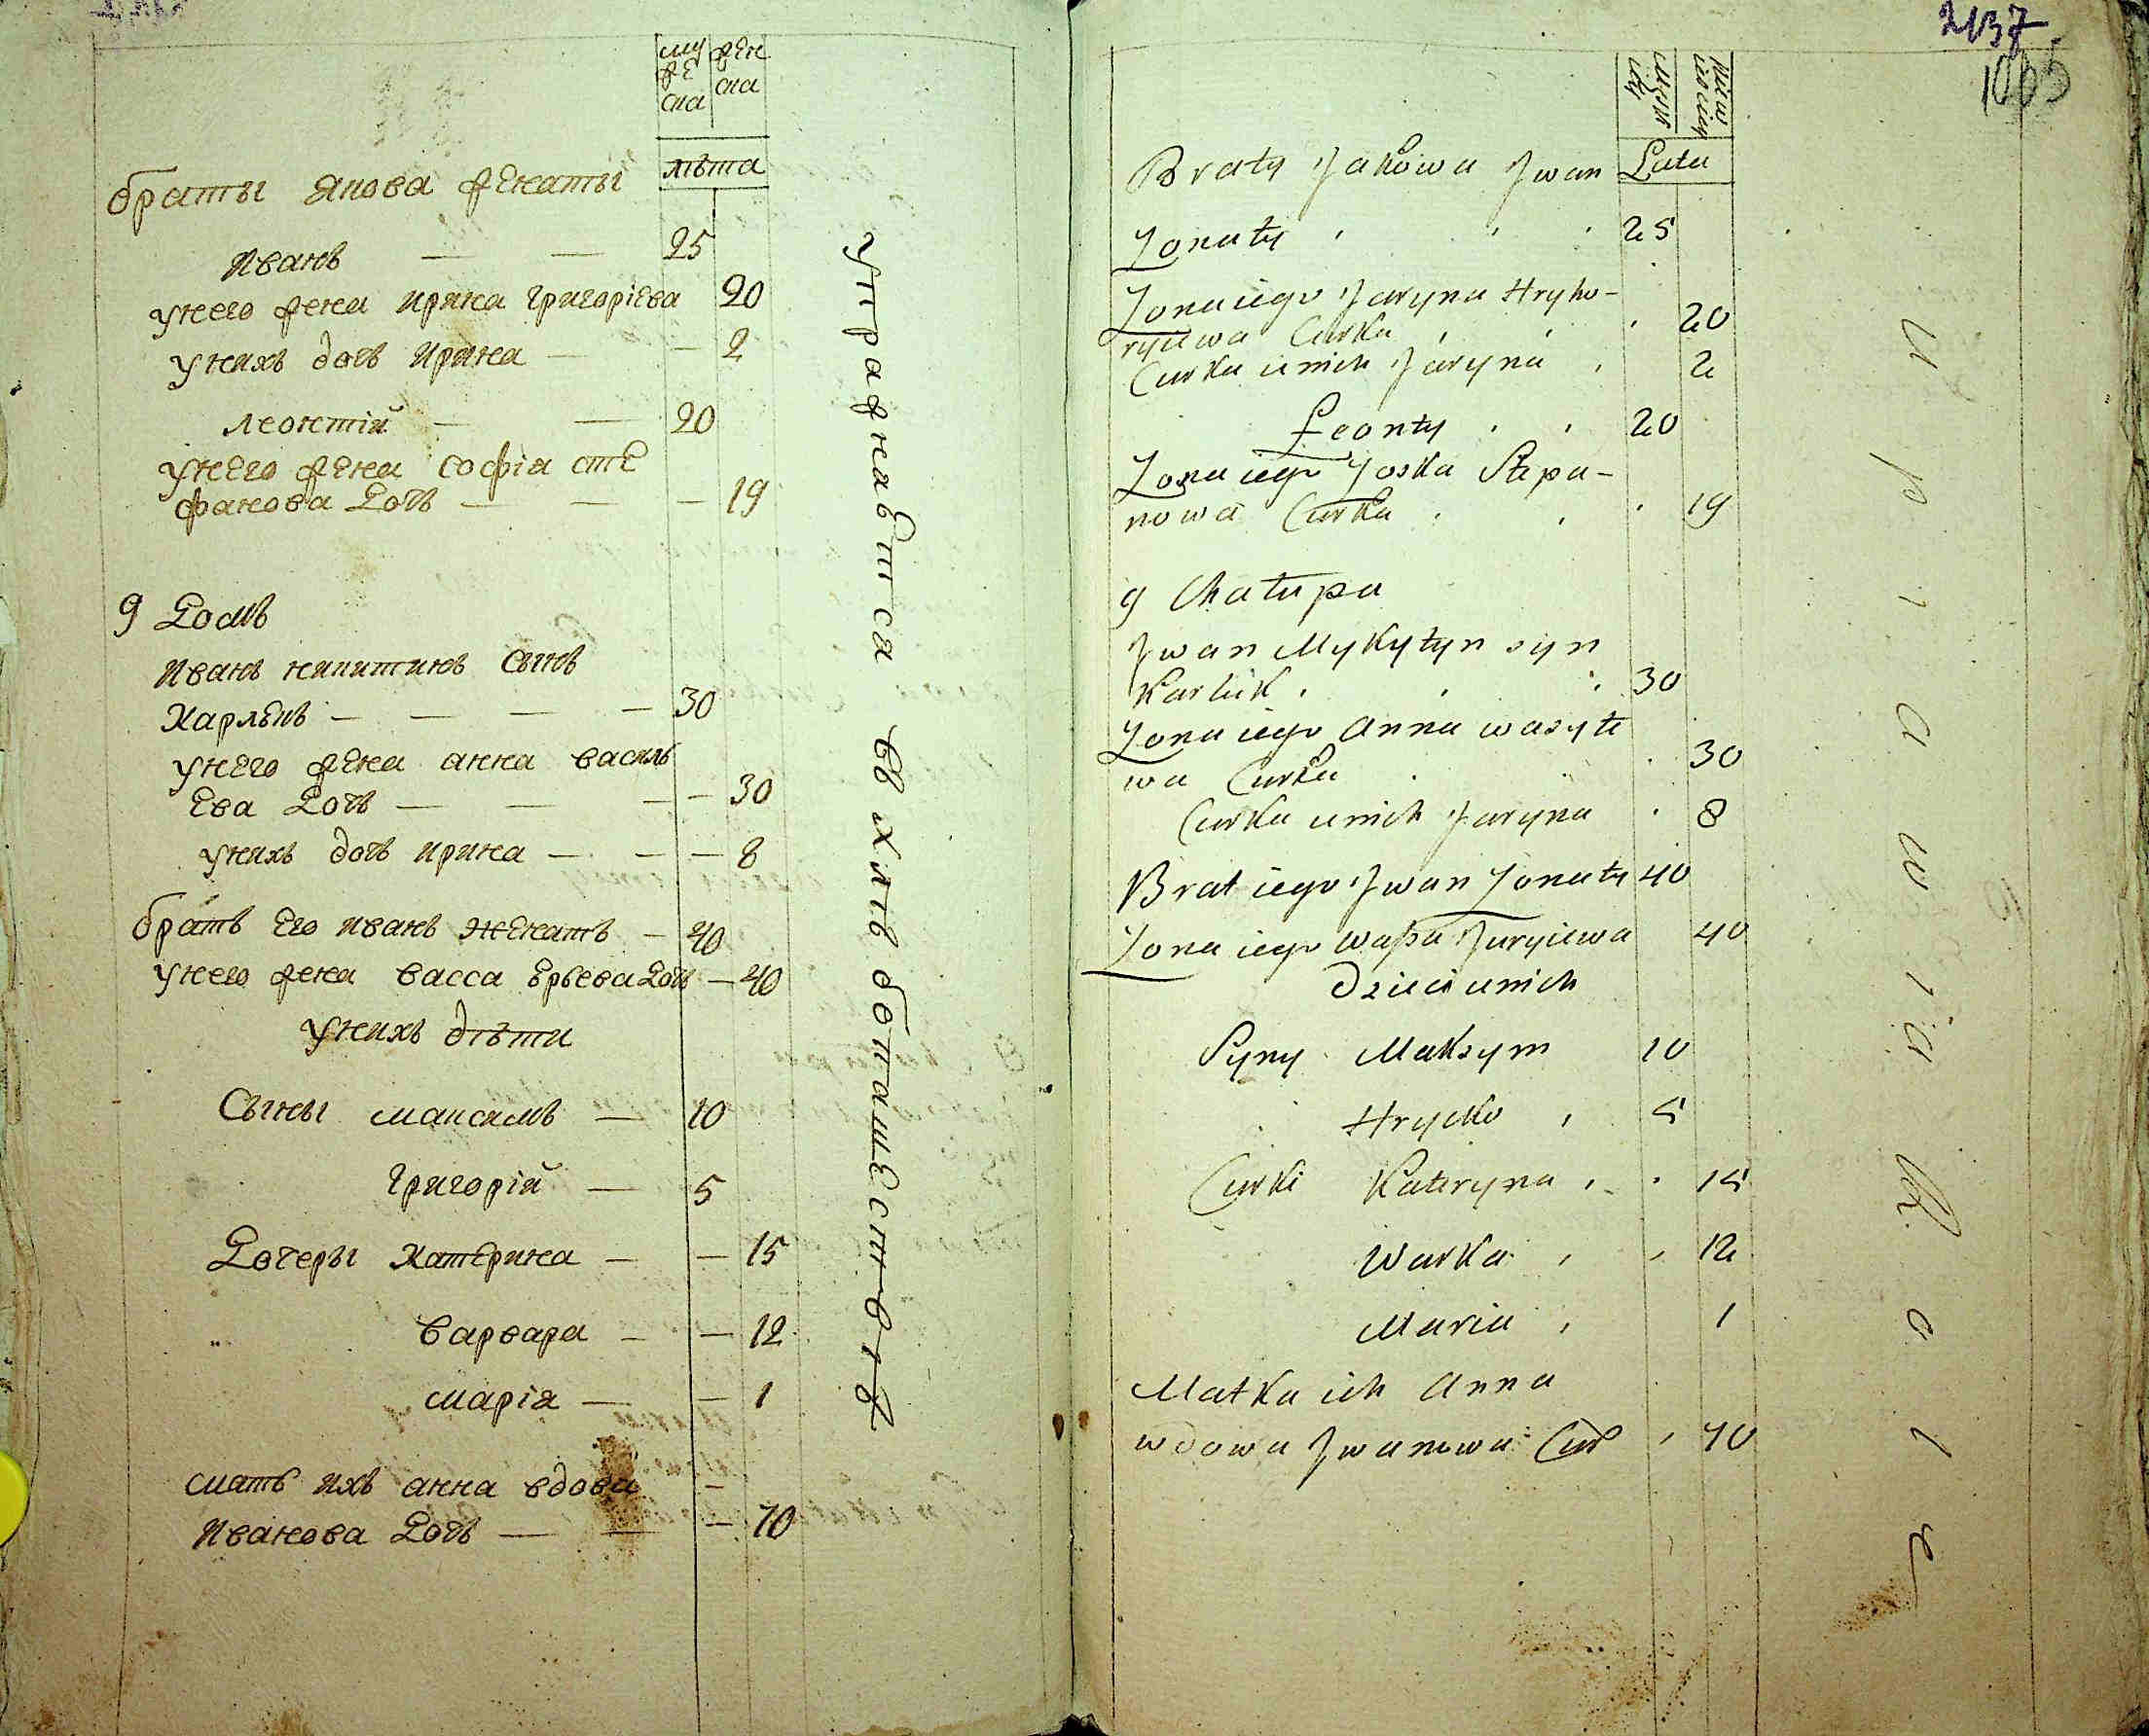 муже
ска
жен
ска
лѣта
браты Якова женаты
Иванъ — — 25
у него жена Ирина Григоріева 20
у нихъ дочь Ирина — — 2
Леонтій — — 20
у него жена Софія Сте
фанова Дочь — — — 19
9 Домъ
Иванъ Никитинъ Сынъ
Карлюкъ — — — — 30
у него жена Анна Василь
ева Дочь — — — — 30
у нихъ дочь Ирина — — — 8
братъ Его Иванъ Женатъ — 40
у него жена Васса Юрьева Дочь — 40
у нихъ дѣти
Сыны Максимъ — 10
Григорій — 5
Дочеры Катерина — — 15
Варвара — — 12
Марія — — 1
Мать ихъ Анна вдова —
Иванова Дочь — — — 70
упражнавтса въ хлѣбопашествѣ
2137.
1005
Lata
Braty Jakowa Jwan
Zonaty 25
Zona iego Jaryna Hryho-
ryiewa Curka 20
Curka u nich Jaryna 2
Leonty 20
Zona iego Zoska Stepa-
nowa Curka 19
9 Chałupa
Jwan Mykytyn syn
Karluk 30
Zona iego Anna wasyle
wa Curka 30
Curka u nich Jaryna 8
Brat iego Jwan Zonaty 40
Zona iego Waßa Juryiewa 40
Dzieci u nich
Syny Maksym 10
Hrycko 5
Curki Kateryna 15
Warka 12
Maria 1
Matka ich Anna
wdowa Jwanowa Cur 70
Upiawia Role